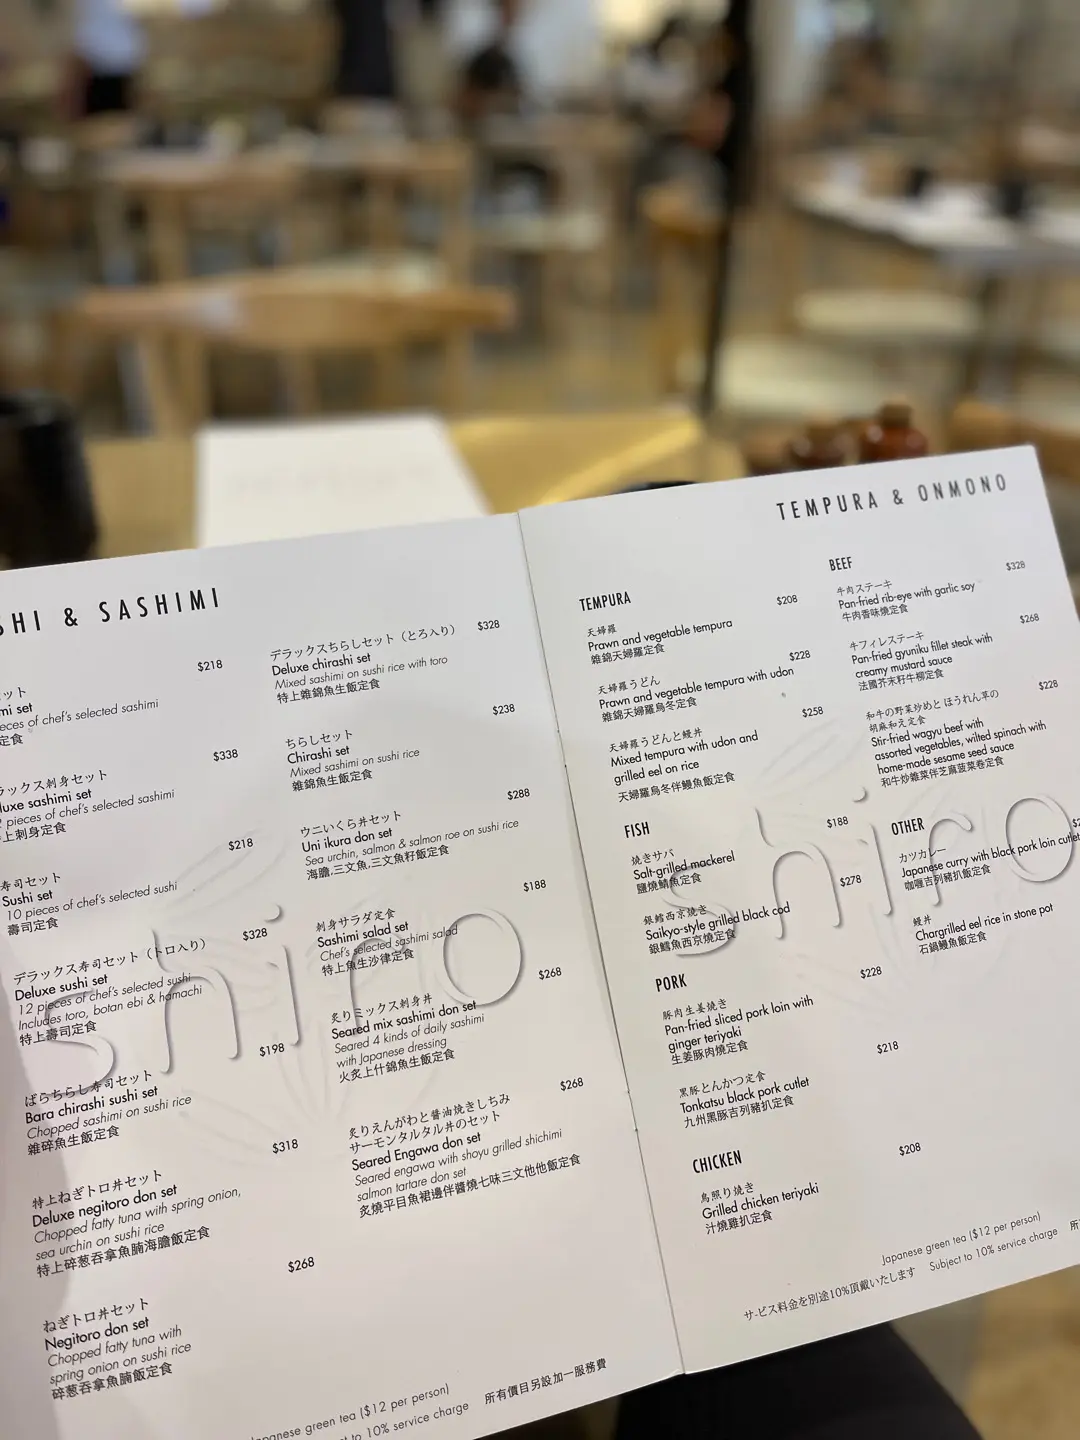 SHI & SASHIMI
$218
ット
mi set
eces of chef's selected sashimi
定食
$338
ラックス刺身セット
luxe sashimi set
pieces of chef's selected sashimi
上刺身定食
$218
寿司セット
Sushi set
10 pieces of chef's selected sushi
壽司定食
$328
デラックス寿司セット（トロ入り）
Deluxe sushi set
12 pieces of chef's selected sushi
Includes toro, botan ebi & hamachi
特上壽司定食
$198
ばらちらし寿司セット
Bara chirashi sushi set
Chopped sashimi on sushi rice
雜碎魚生飯定食
$318
特上ねぎトロ丼セット
Deluxe negitoro don set
Chopped fatty tuna with spring onion,
sea urchin on sushi rice
特上碎葱吞拿魚腩海膽飯定食
$268
ねぎトロ丼セット
Negitoro don set
Chopped fatty tuna with
spring onion on sushi rice
碎葱吞拿魚腩飯定食
$328
デラックスちらしセット（とろ入り）
Deluxe chirashi set
Mixed sashimi on sushi rice with toro
特上雜錦魚生飯定食
$238
ちらしセット
Chirashi set
Mixed sashimi on sushi rice
雜錦魚生飯定食
$288
ウニいくら丼セット
Uni ikura don set
Sea urchin, salmon & salmon roe on sushi rice
海膽,三文魚,三文魚籽飯定食
$188
刺身サラダ定食
Sashimi salad set
Chef's selected sashimi salad
特上魚生沙律定食
$268
炙りミックス刺身丼
Seared mix sashimi don set
Seared 4 kinds of daily sashimi
with Japanese dressing
火炙上什錦魚生飯定食
$268
炙りえんがわと醤油焼きしちみ
サーモンタルタル丼のセット
Seared Engawa don set
Seared engawa with shoyu grilled shichimi
salmon tartare don set
炙燒平目魚裙邊伴醬燒七味三文他他飯定食
apanese green tea ($12 per person)
ct to 10% service charge 所有價目另設加一服務費
shiro
TEMPURA & ONMONO
TEMPURA
$208
天婦羅
Prawn and vegetable tempura
雜錦天婦羅定食
$228
天婦羅うどん
Prawn and vegetable tempura with udon
雜錦天婦羅烏冬定食
$258
天婦羅うどんと鰻丼
Mixed tempura with udon and
grilled eel on rice
天婦羅烏冬伴鰻魚飯定食
FISH
$188
焼きサバ
Salt-grilled mackerel
鹽燒鯖魚定食
$278
銀鱈西京焼き
Saikyo-style grilled black cod
銀鱈魚西京燒定食
PORK
$228
豚肉生姜焼き
Pan-fried sliced pork loin with
ginger teriyaki
生姜豚肉燒定食
$218
黒豚とんかつ定食
Tonkatsu black pork cutlet
九州黑豚吉列豬扒定食
CHICKEN
$208
鳥照り焼き
Grilled chicken teriyaki
汁燒雞扒定食
BEEF
$328
牛肉ステーキ
Pan-fried rib-eye with garlic soy
牛肉香味燒定食
$268
牛フィレステーキ
Pan-fried gyuniku fillet steak with
creamy mustard sauce
法國芥末籽牛柳定食
$228
和牛の野菜炒めとほうれん草の
胡麻和え定食
Stir-fried wagyu beef with
assorted vegetables, wilted spinach with
home-made sesame seed sauce
和牛炒雜菜伴芝麻菠菜卷定食
OTHER
カツカレー
Japanese curry with black pork loin cutlet
咖喱吉列豬扒飯定食
鰻丼
Chargrilled eel rice in stone pot
石鍋鰻魚飯定食
Japanese green tea ($12 per person)
サービス料金を別途10%頂戴いたします Subject to 10% service charge 所
shiro